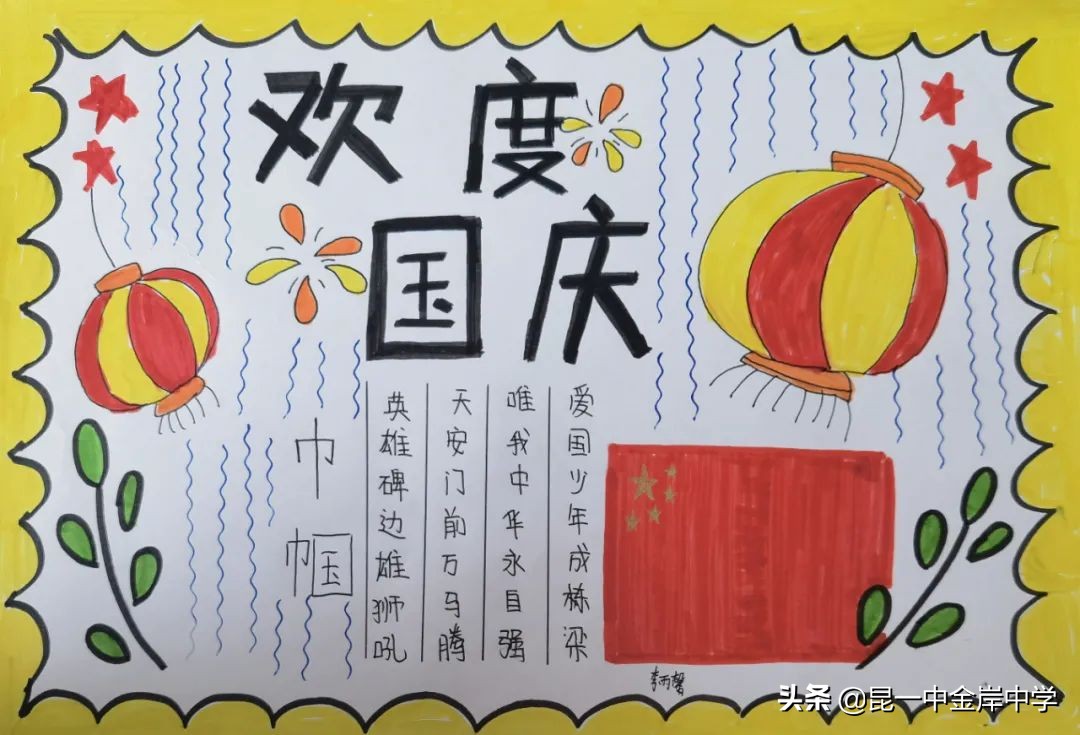 欢度
国庆
巾帼
英雄碑边雄狮吼
天安门前万马腾
唯我中华永自强
爱国少年成栋梁
头条 @昆一中金岸中学